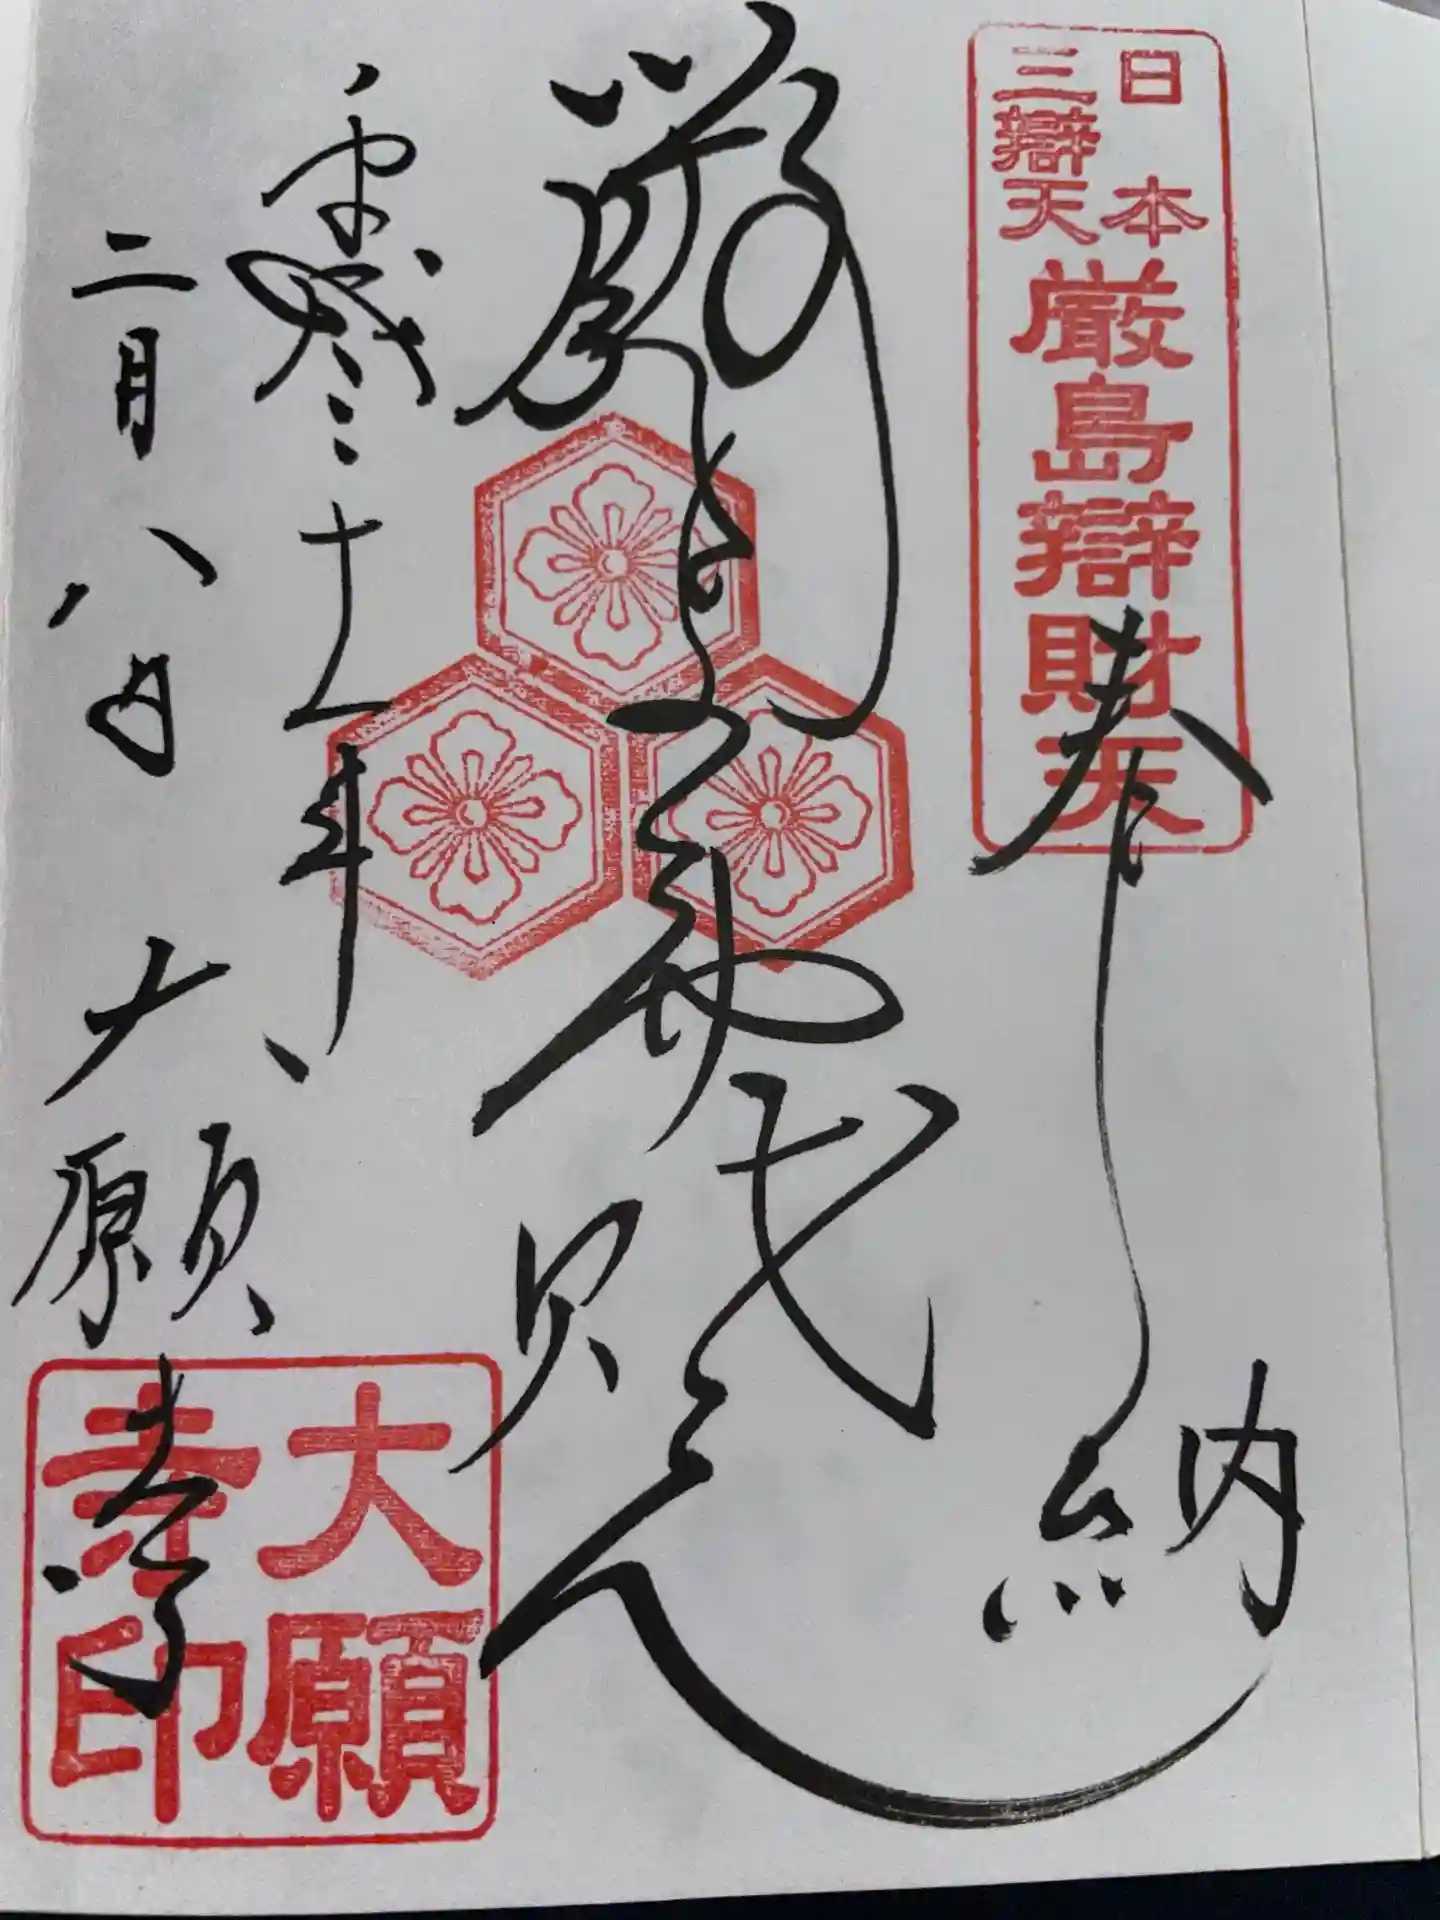 日本
三辯天
厳島辯財天
奉納
厳島辯財天
平成三十一年
二月八日 大願寺
大願
寺印